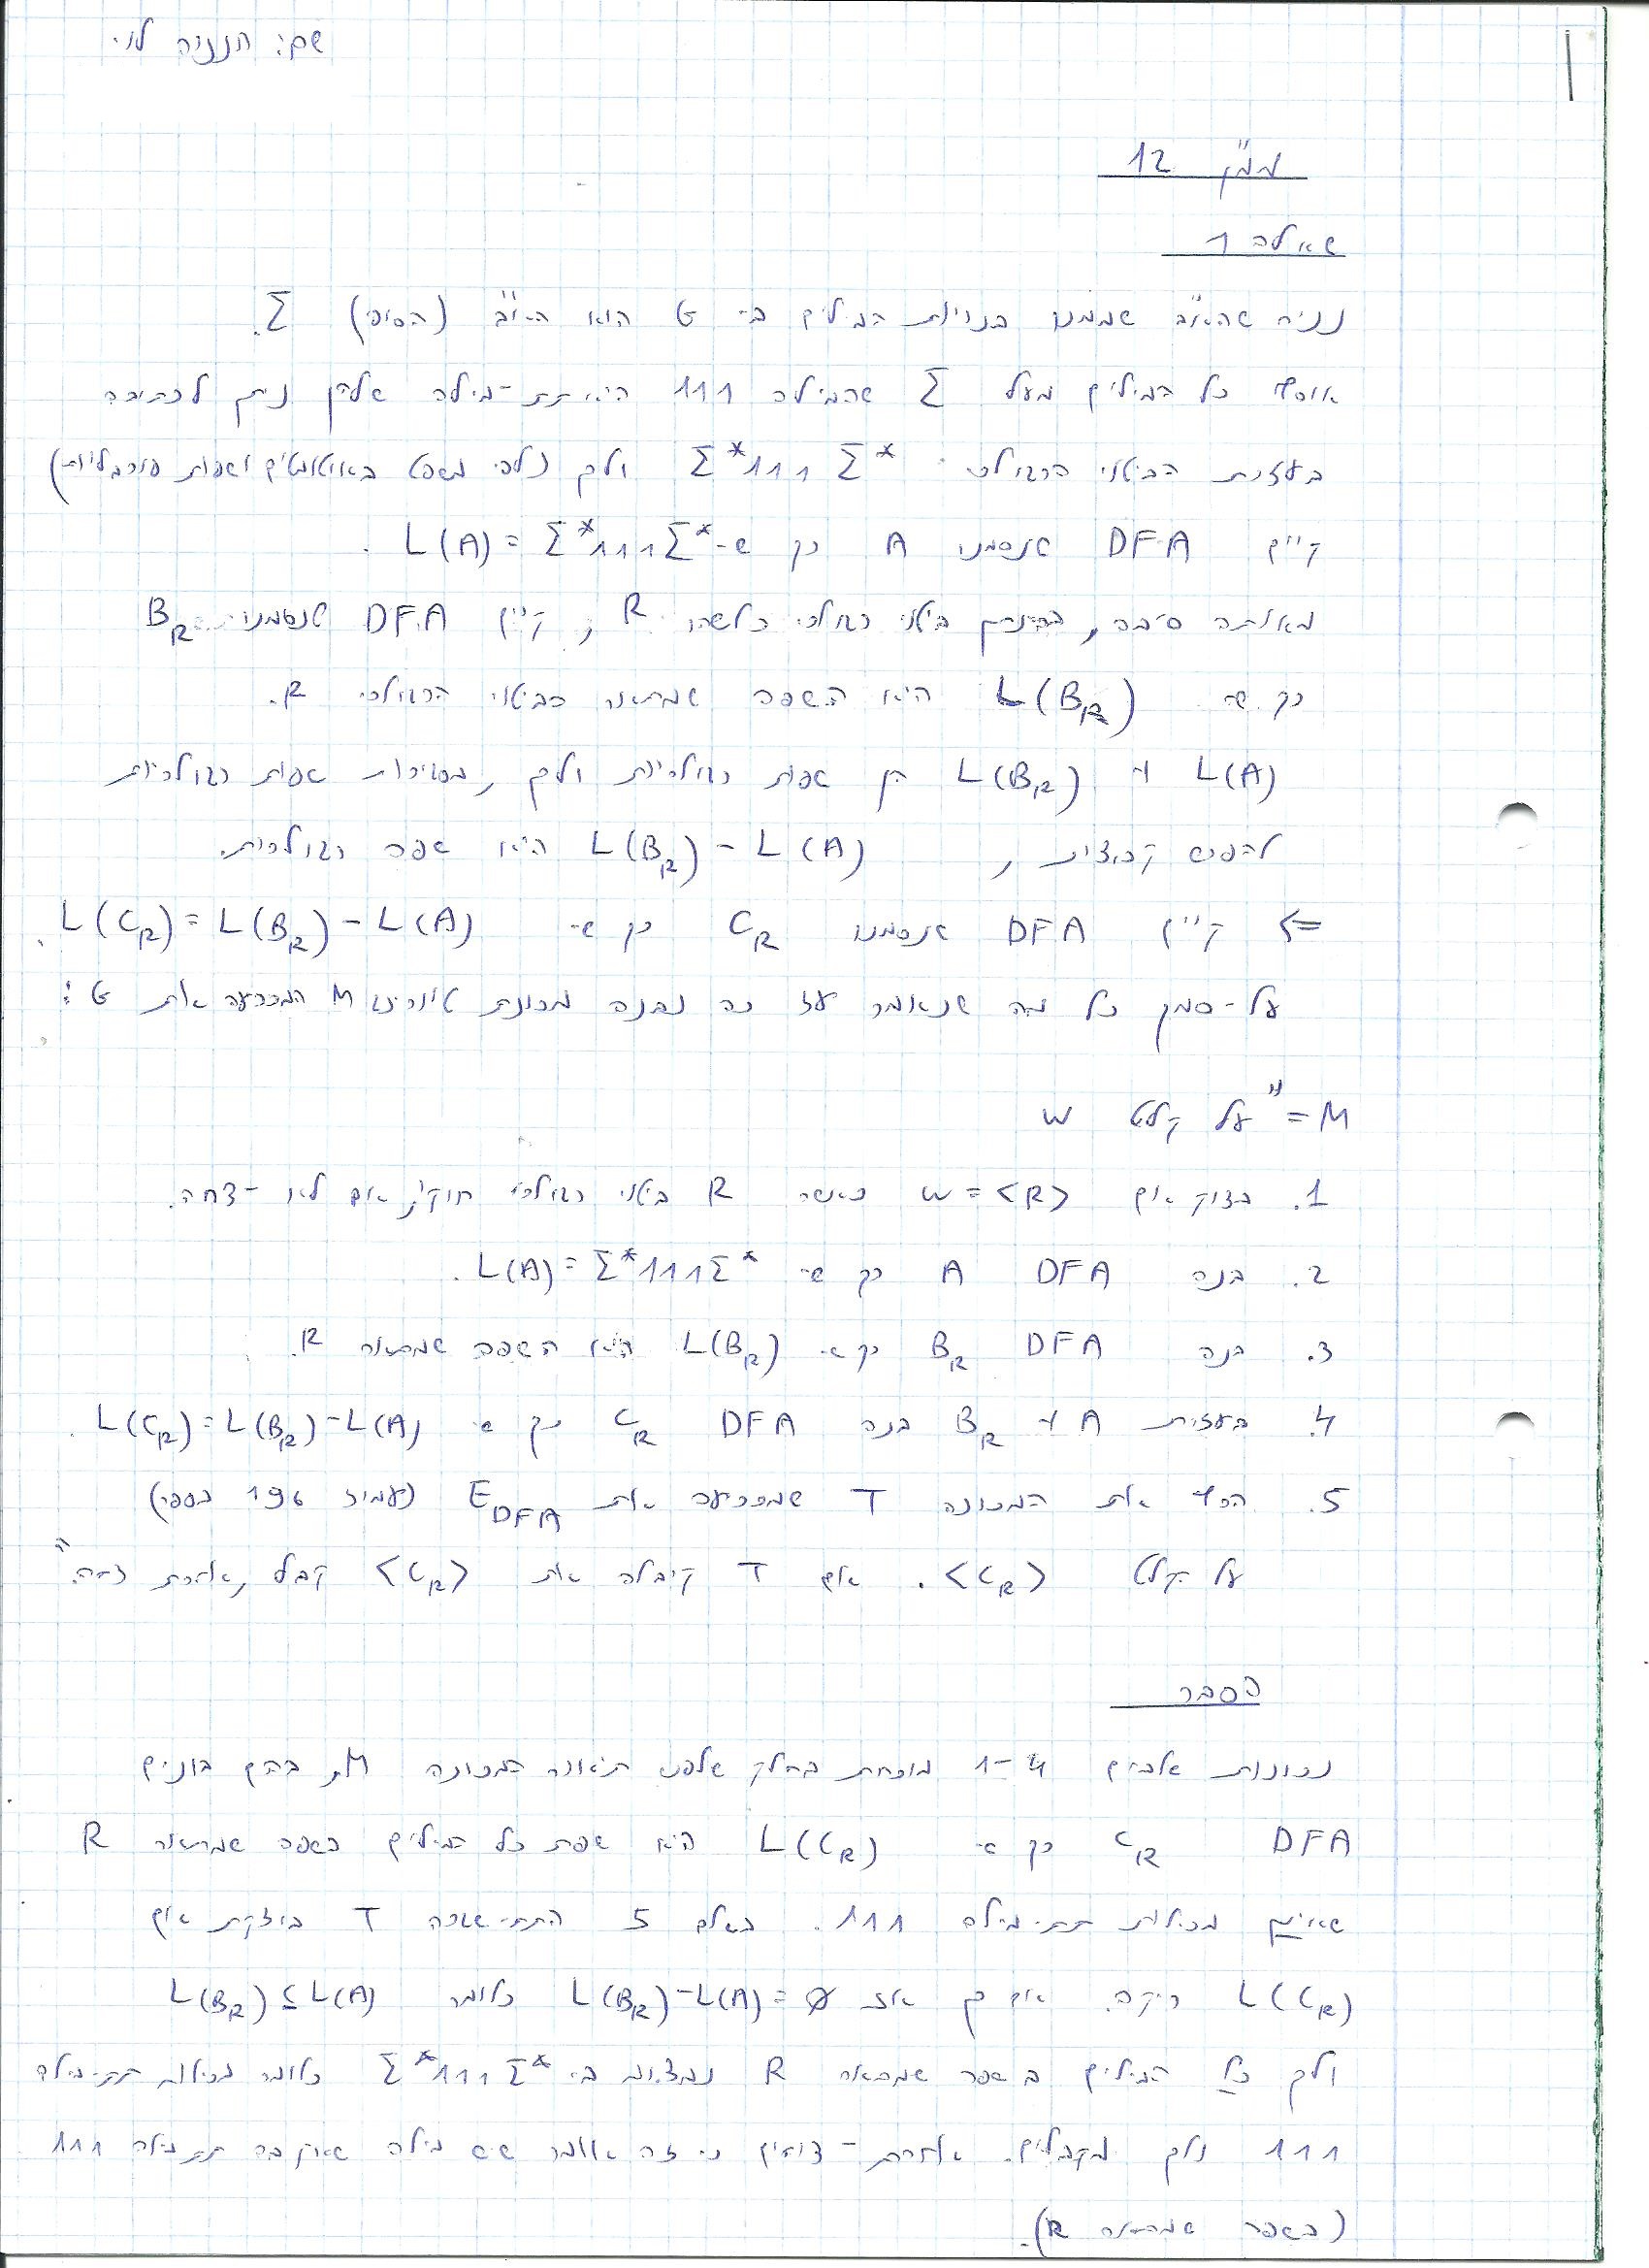 שם: חנניה לוי
ממ"ן 12
שאלה 1
נניח שהא"ב שממנו בנויות המילים ב- G הוא הא"ב (הסופי) Σ.
אוסף כל המילים מעל Σ שהמילה 111 היא תת-מילה שלהן ניתן לכתיבה
בעזרת הביטוי הרגולרי Σ*111Σ* ולכן (לפי משפט באוטומטים ושפות פורמליות)
קיים DFA שנסמנו A כך ש- L(A) = Σ*111Σ*.
מאותה סיבה, בהינתן ביטוי רגולרי כלשהו R, קיים DFA שנסמנו B_R
כך ש- L(B_R) היא השפה שמתאר הביטוי הרגולרי R.
L(A) ו- L(B_R) הן שפות רגולריות ולכן, מסגירות שפות רגולריות
להפרש קבוצות, L(B_R) - L(A) היא שפה רגולרית.
<= קיים DFA שנסמנו C_R כך ש- L(C_R) = L(B_R) - L(A).
על-סמך כל מה שנאמר עד כה נבנה מכונת טיורינג M המכריעה את G:
M = "על קלט w
1. בדוק אם w = <R> כאשר R ביטוי רגולרי חוקי, אם לא - דחה.
2. בנה DFA A כך ש- L(A) = Σ*111Σ*.
3. בנה DFA B_R כך ש- L(B_R) היא השפה שמתאר R.
4. בעזרת A ו- B_R בנה DFA C_R כך ש- L(C_R) = L(B_R) - L(A).
5. הרץ את המכונה T שמכריעה את E_DFA (עמוד 196 בספר)
על קלט <C_R>. אם T קיבלה את <C_R> קבל, אחרת דחה."
הסבר
נכונות שלבים 1-4 מוכחת בחלק שלפני תיאור המכונה M, בהם בונים
DFA C_R כך ש- L(C_R) היא שפת כל המילים בשפה שמתאר R
שאינן מכילות תת-מילה 111. בשלב 5 התת-שגרה T בודקת אם
L(C_R) ריקה. אם כן אז L(B_R) - L(A) = ∅ כלומר L(B_R) ⊆ L(A)
ולכן כל המילים בשפה שמתאר R נמצאות ב- Σ*111Σ* כלומר מכילות תת-מילה
111 ולכן מקבלים. אחרת - דוחים כי זה אומר שיש מילה שאין בה תת מילה 111
(בשפה שמתאר R).